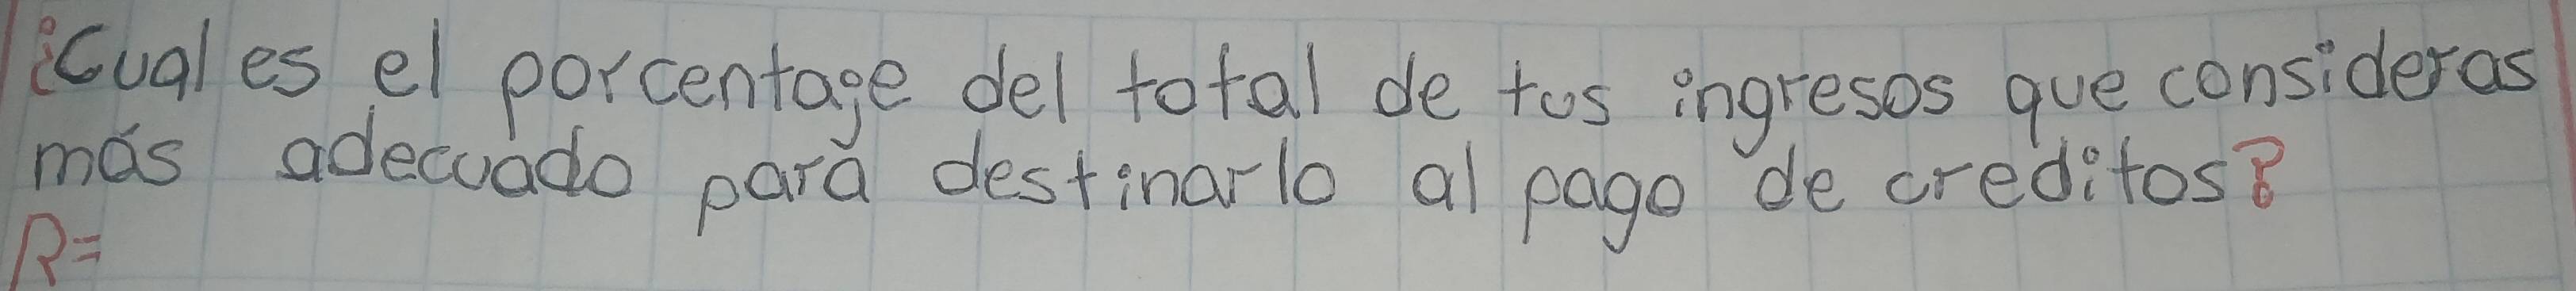 ¿Cual es el porcentage del total de tus ingresos que consideras
más adecuado para destinarlo al pago de creditos?
R=